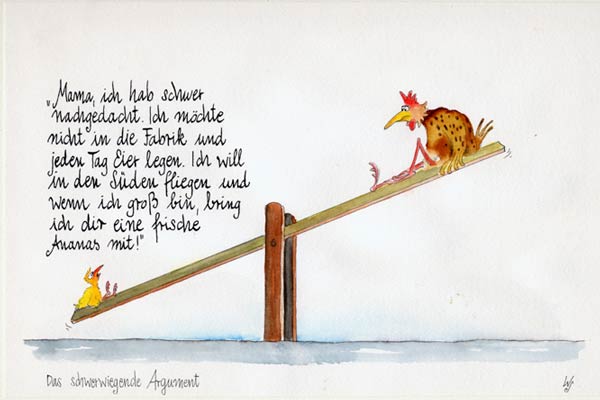 „Mama, ich hab schwer
nachgedacht. Ich möchte
nicht in die Fabrik und
jeden Tag Eier legen. Ich will
in den Süden fliegen und
wenn ich groß bin, bring
ich dir eine frische
Ananas mit!"
Das schwerwiegende Argument